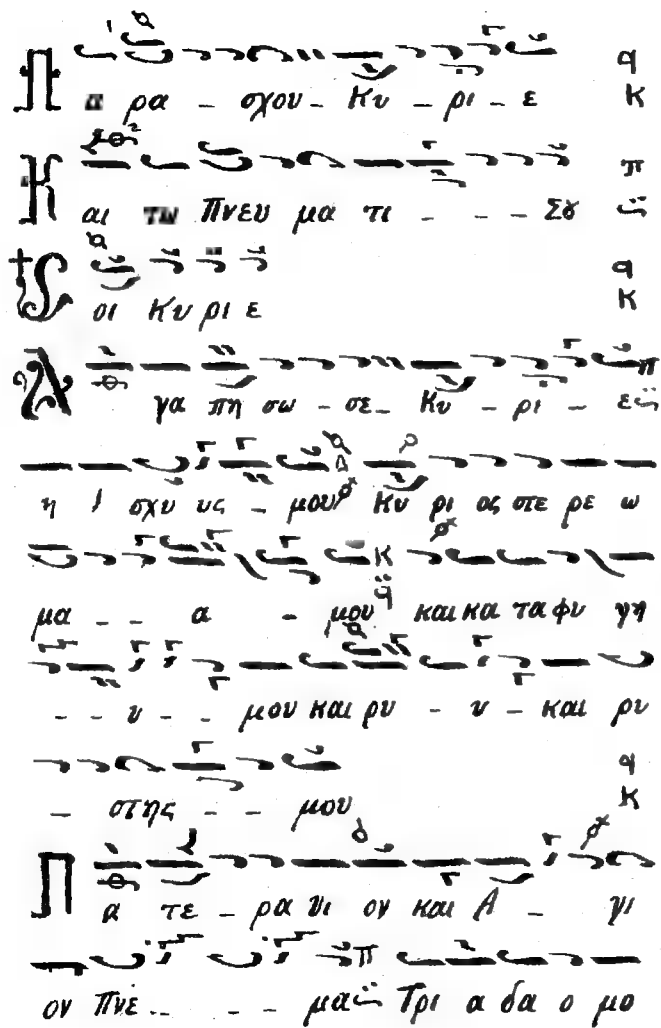 Πα ρα _ σχου _ Κυ _ ρι _ ε
Και τω Πνευ μα τι _ _ _ Σȣ
Σοι Κυ ρι ε
Α γα πη σω _ σε _ Κυ _ ρι _ ε
η ι σχυ υς _ μου Κυ ρι ος στε ρε ω
μα _ _ α _ μου και κα τα φυ γη
_ _ υ _ _ μου και ρυ _ υ _ και ρυ
_ στης _ _ μου
Πα τε _ ρα Υι ον και Α _ γι
ον Πνε _ _ _ _ μα Τρι α δα ο μο